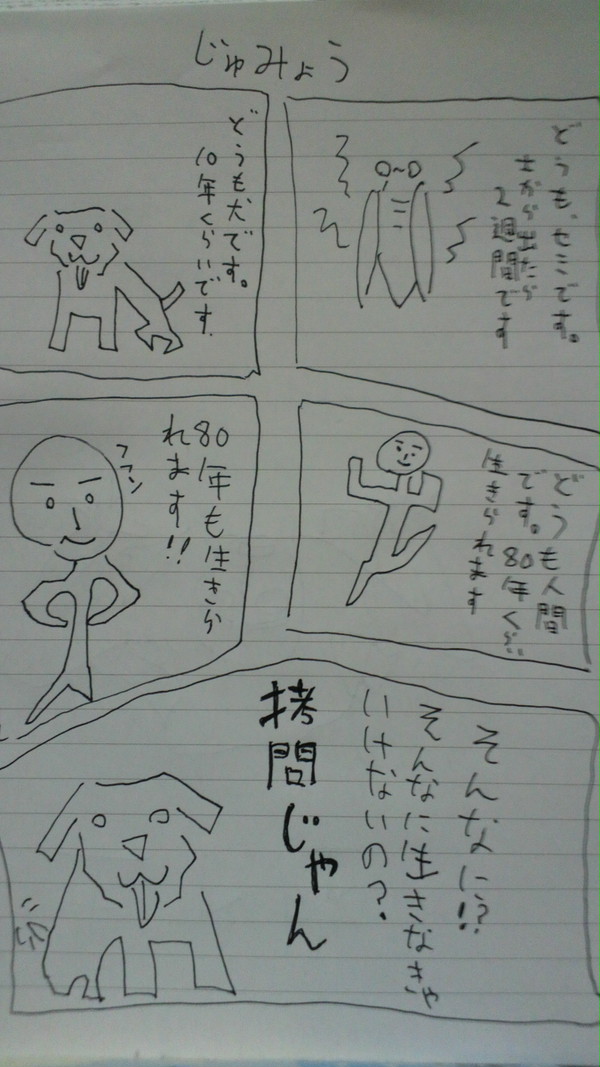 じゅみょう
どうも、セミです。
土から出たら
2週間です
どうも犬です。
10年くらいです
どうも人間
です。80年くらい
生きられます
80年も生きら
れます!!
フフン
そんなに!?
そんなに生きなきゃ
いけないの?
拷問じゃん